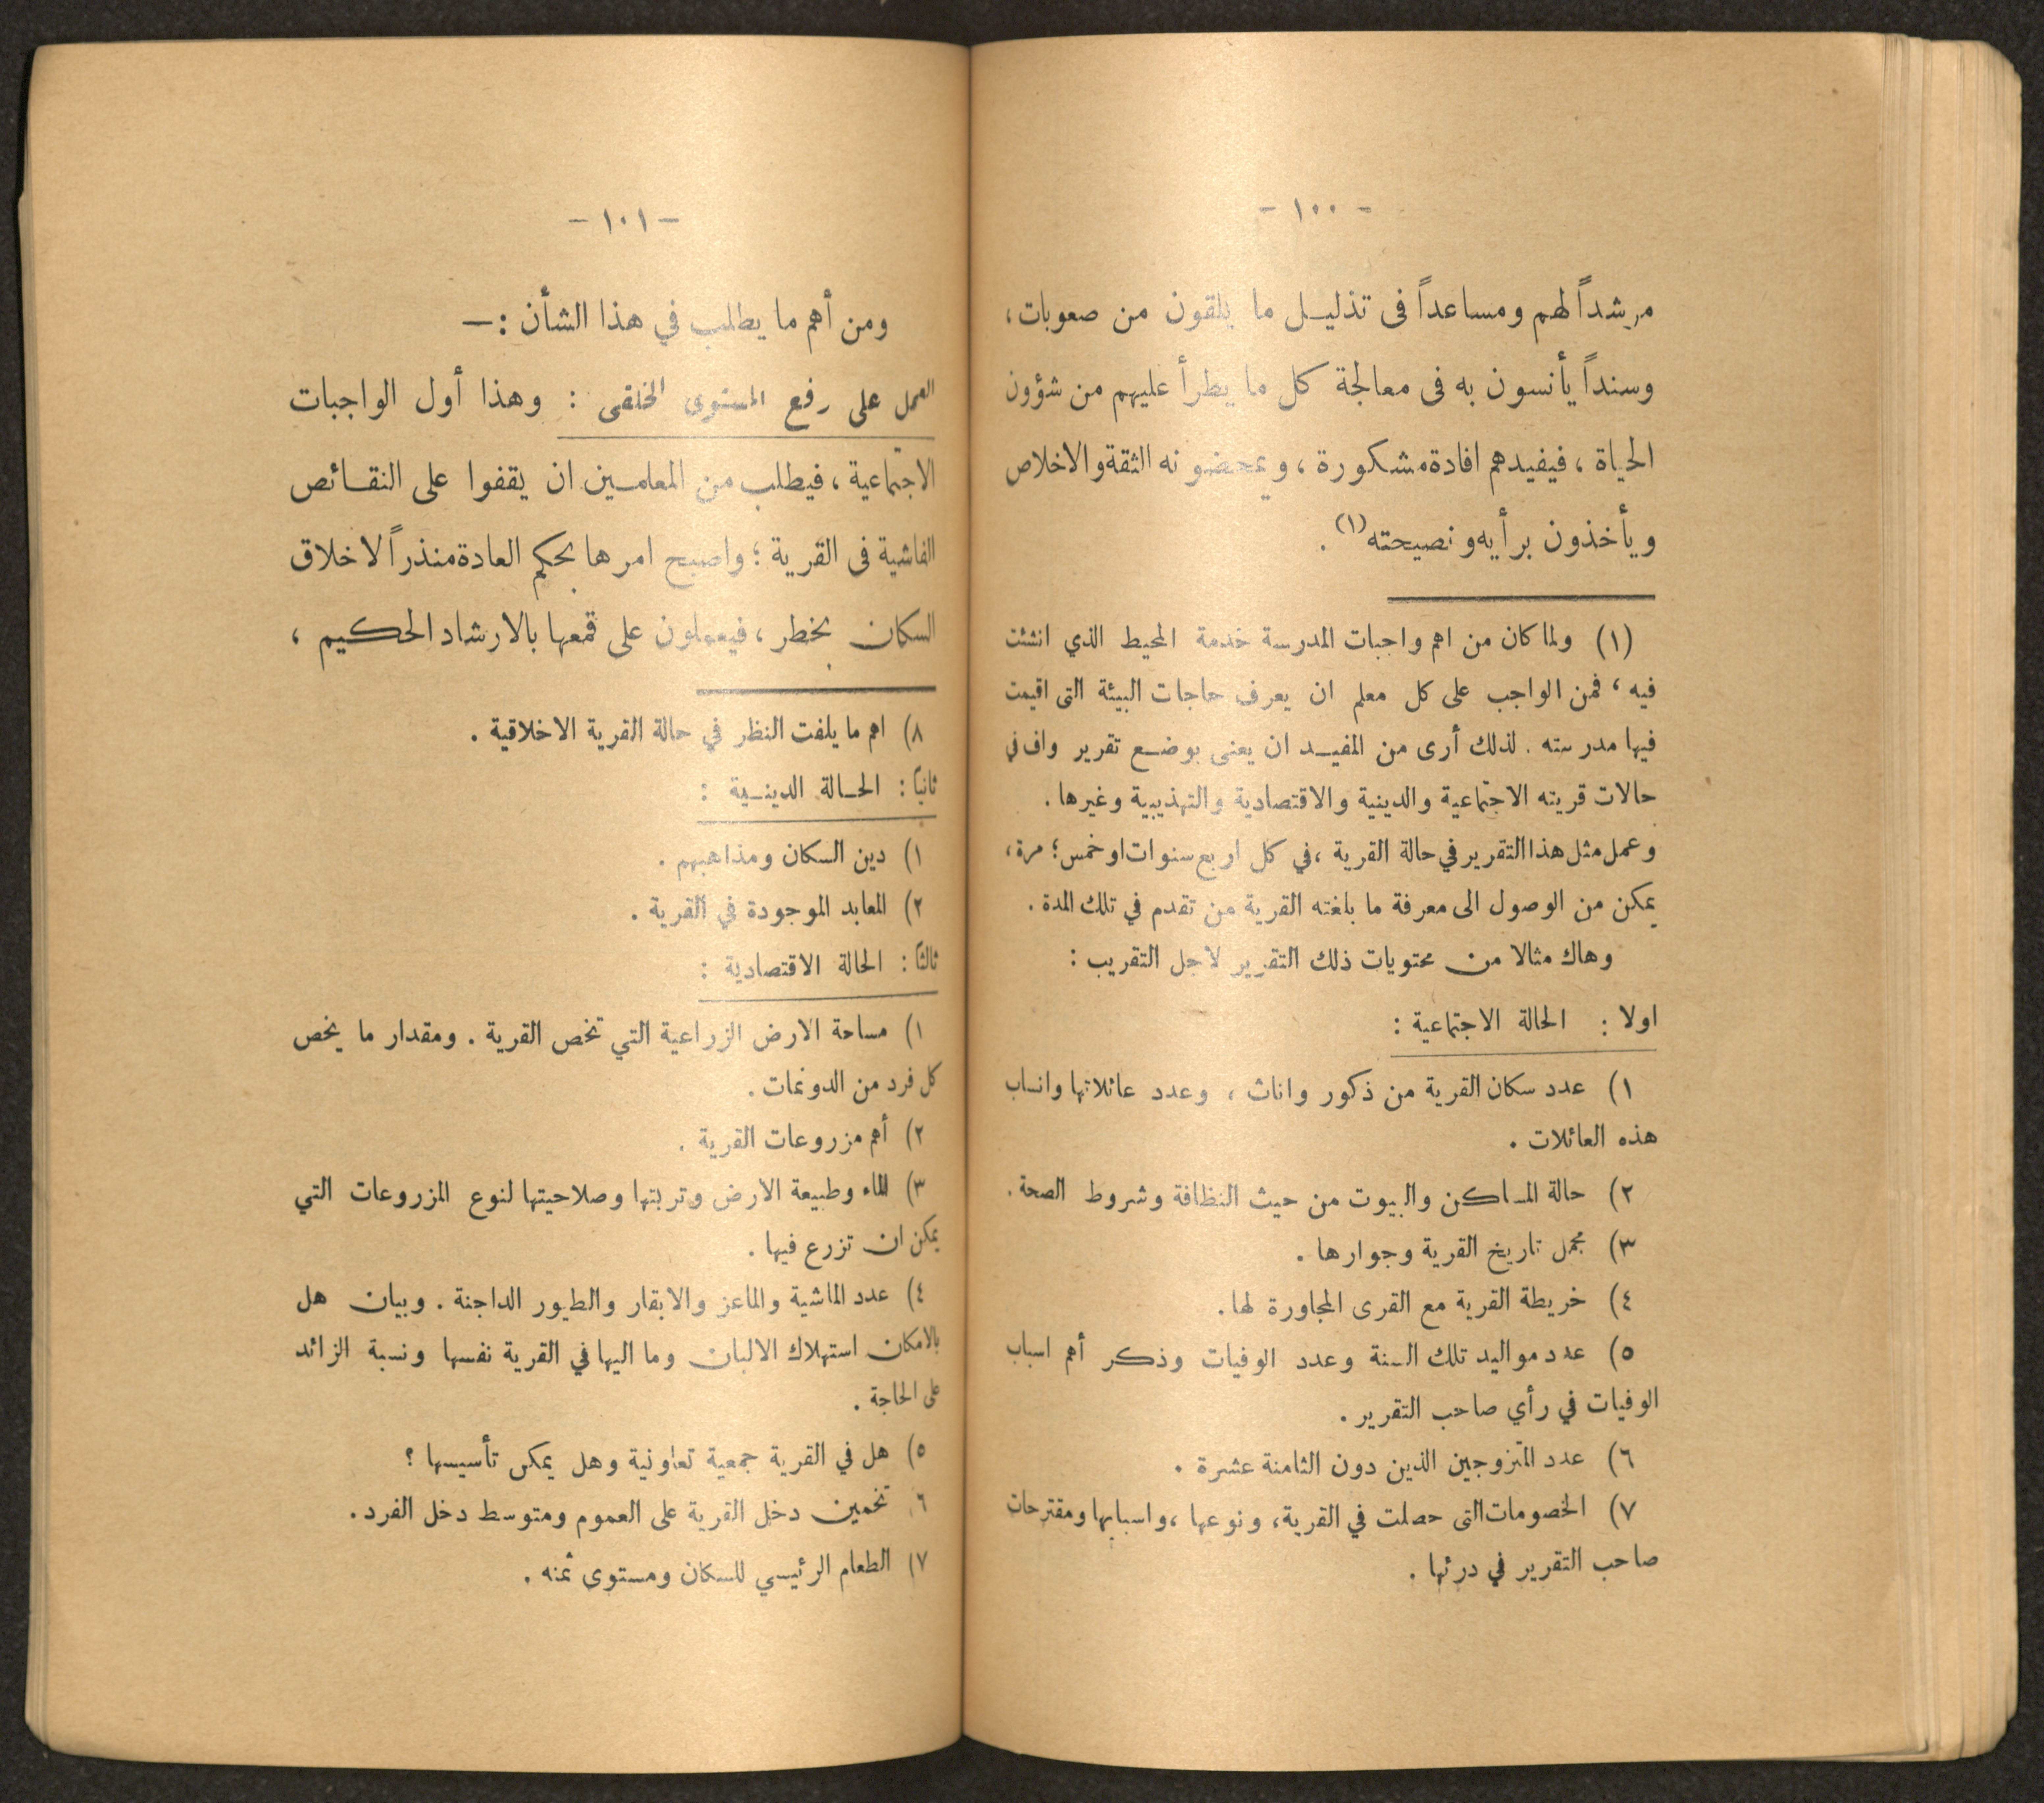 - ١٠٠ -
مرشداً لهم ومساعداً فى تذليـل ما يلقون من صعوبات ،
وسنداً يأنسون به فى معالجة كل ما يطرأ عليهم من شؤون
الحياة ، فيفيدهم افادة مشكورة ، ويمحضونه الثقة والاخلاص
ويأخذون برأيه ونصيحته (١) .
(١) ولما كان من اهم واجبات المدرسة خدمة المحيط الذي انشئت
فيه ، فمن الواجب على كل معلم ان يعرف حاجات البيئة التى اقيمت
فيها مدرسته . لذلك أرى من المفيـد ان يعنى بوضـع تقرير واف في
حالات قريته الاجتماعية والدينية والاقتصادية والتهذيبية وغيرها .
وعمل مثل هذا التقرير في حالة القرية ، في كل اربع سنوات او خمس ؛ مرة ،
يمكن من الوصول الى معرفة ما بلغته القرية من تقدم في تلك المدة .
وهاك مثالا من محتويات ذلك التقرير لاجل التقريب :
اولا : الحالة الاجتماعية :
١) عدد سكان القرية من ذكور واناث ، وعدد عائلاتها وانساب
هذه العائلات .
٢) حالة المساكن والبيوت من حيث النظافة وشروط الصحة .
٣) مجمل تاريخ القرية وجوارها .
٤) خريطة القرية مع القرى المجاورة لها .
٥) عدد مواليد تلك السنة وعدد الوفيات وذكر أهم اسباب
الوفيات في رأي صاحب التقرير .
٦) عدد المتزوجين الذين دون الثامنة عشرة .
٧) الخصومات التى حصلت في القرية ، ونوعها ، واسبابها ومقترحات
صاحب التقرير في درئها .
- ١٠١ -
ومن أهم ما يطلب في هذا الشأن :—
العمل على رفع المستوى الخلقى : وهذا أول الواجبات
الاجتماعية ، فيطلب من المعلمـين ان يقفوا على النقـائص
الفاشية فى القرية ؛ واصبح امرها بحكم العادة منذراً لاخلاق
السكان بخطر ، فيعملون على قمعها بالارشاد الحكيم ،
٨) اهم ما يلفت النظر في حالة القرية الاخلاقية .
ثانياً : الحـالة الدينـية :
١) دين السكان ومذاهبهم .
٢) المعابد الموجودة في القرية .
ثالثاً : الحالة الاقتصادية :
١) مساحة الارض الزراعية التي تخص القرية . ومقدار ما يخص
كل فرد من الدونمات .
٢) أهم مزروعات القرية .
٣) الماء وطبيعة الارض وتربتها وصلاحيتها لنوع المزروعات التي
يمكن ان تزرع فيها .
٤) عدد الماشية والماعز والابقار والطيور الداجنة . وبيان هل
بالامكان استهلاك الالبان وما اليها في القرية نفسها ونسبة الزائد
على الحاجة .
٥) هل في القرية جمعية تعاونية وهل يمكن تأسيسها ؟
٦) تخمين دخل القرية على العموم ومتوسط دخل الفرد .
٧) الطعام الرئيسي للسكان ومستوى ثمنه .